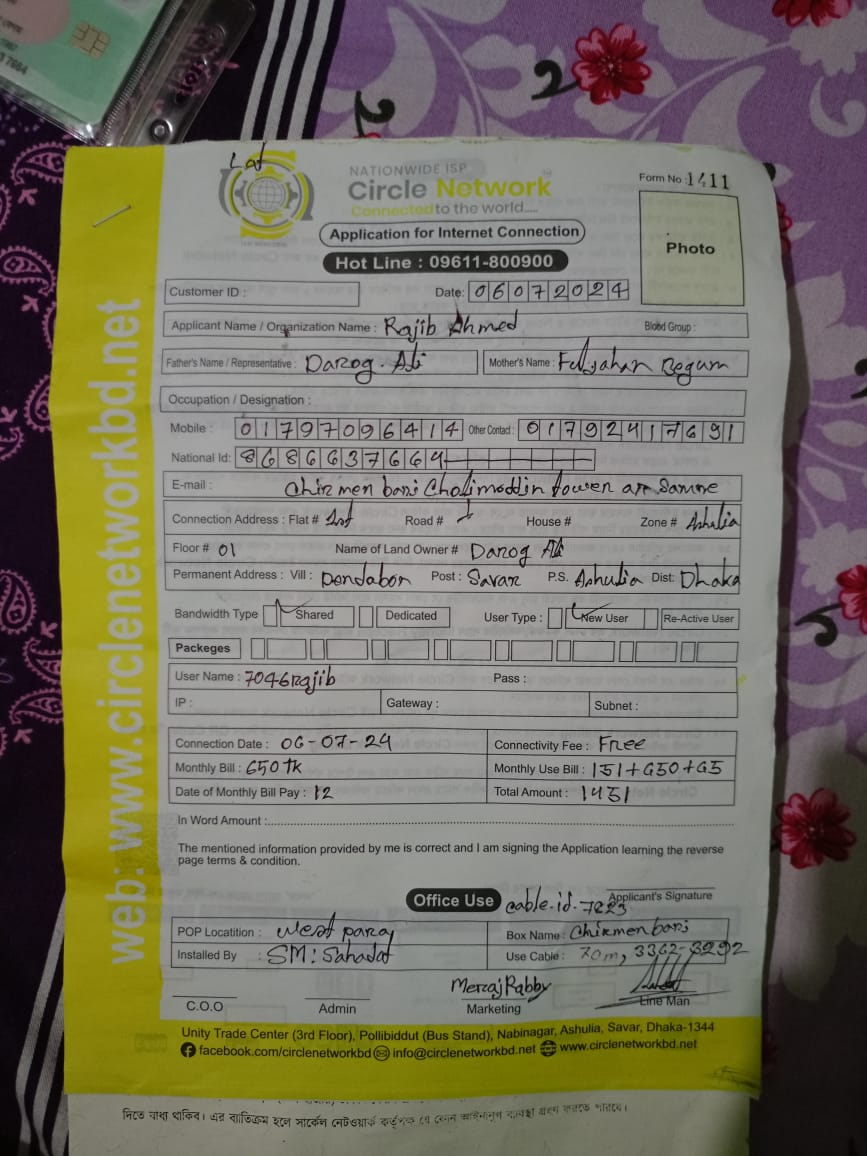 7664
Lat
NATIONWIDE ISP
Circle Network
Connected to the world.....
Form No : 1411
Application for Internet Connection
Photo
Hot Line : 09611-800900
Customer ID :
Date: 06072024
Applicant Name / Organization Name : Rajib Ahmed Blood Group :
Father's Name / Representative : Darog. Ali Mother's Name : Begum
Occupation / Designation :
Mobile : 01797096414 Other Contact : 01792417691
National Id: 8686637664
E-mail : Chirmen bari Cholimoddin tower
Connection Address : Flat # 1st Road # House # Zone # Ashulia
Floor # 01 Name of Land Owner # Darog Ali
Permanent Address : Vill : Dendabor Post : Savar P.S. Ashulia Dist: Dhaka
Bandwidth Type Shared Dedicated User Type : New User Re-Active User
Packeges
User Name : 7046Rajib Pass :
IP : Gateway : Subnet :
Connection Date : 06-07-24 Connectivity Fee : Free
Monthly Bill : 650 TK Monthly Use Bill : 151+650+65
Date of Monthly Bill Pay : 12 Total Amount : 1451
In Word Amount :
The mentioned information provided by me is correct and I am signing the Application learning the reverse
page terms & condition.
Applicant's Signature
Office Use cable.id.7223
POP Locatition : West para Box Name : Chirmen bari
Installed By : SM: Sahadat Use Cable : 70m, 3362-3292
C.O.O Admin Merzaj Rabby
Marketing Line Man
Unity Trade Center (3rd Floor), Pollibiddut (Bus Stand), Nabinagar, Ashulia, Savar, Dhaka-1344
facebook.com/circlenetworkbd info@circlenetworkbd.net www.circlenetworkbd.net
web: www.circlenetworkbd.net
দিতে বাধ্য থাকিব। এর ব্যতিক্রম হলে সার্কেল নেটওয়ার্ক কর্তৃপক্ষ যে কোন আইনানুগ ব্যবস্থা গ্রহণ করতে পারবে।